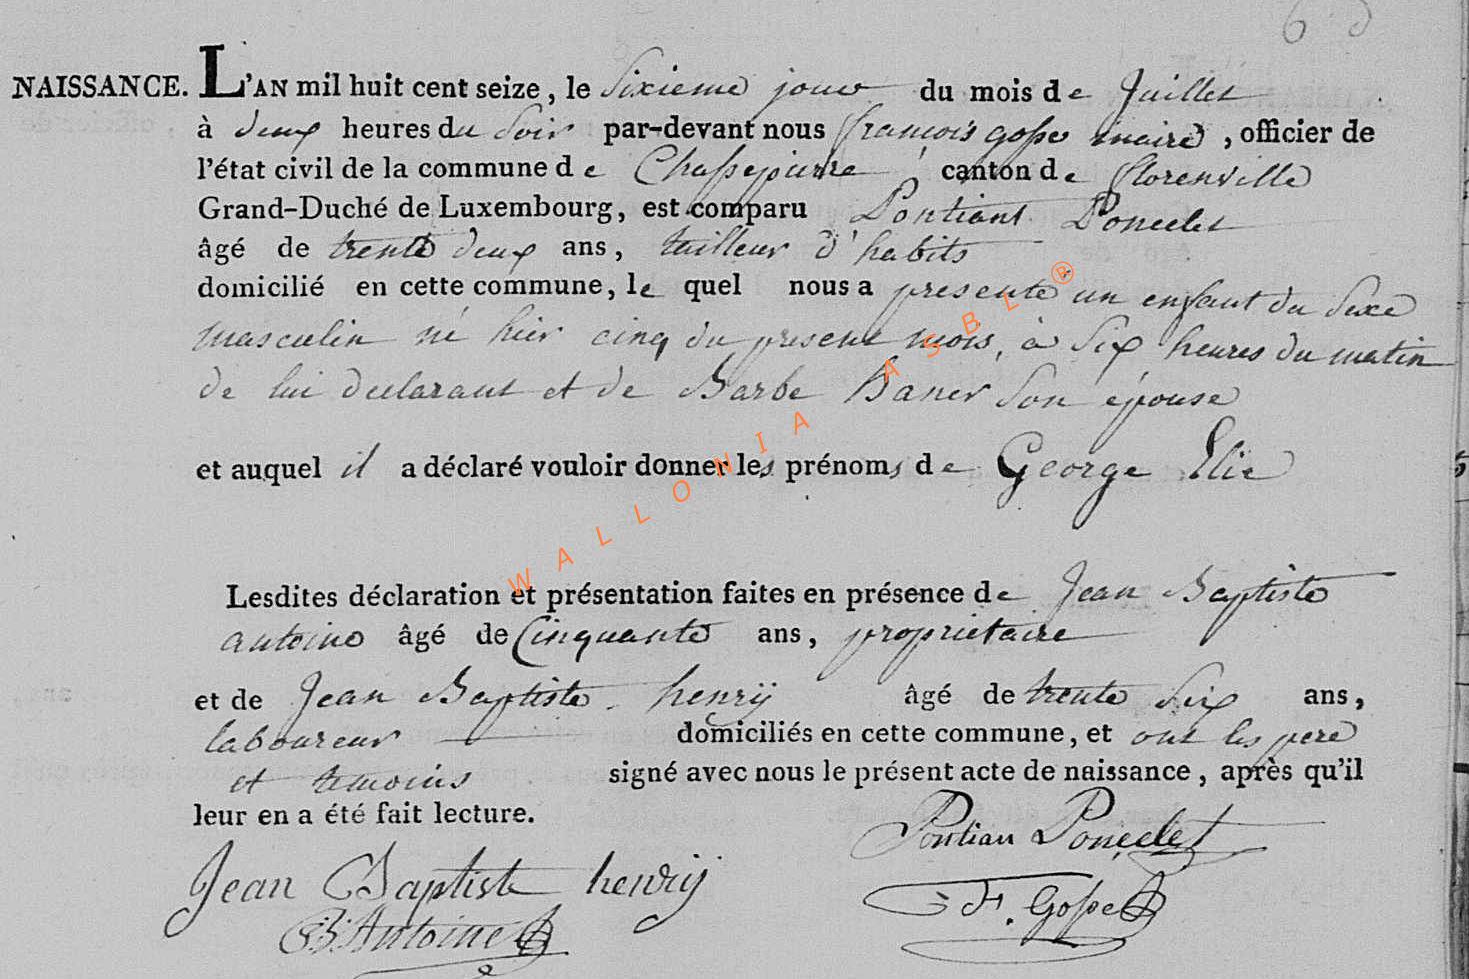 NAISSANCE. L'AN mil huit cent seize, le sixieme jour du mois de Juillet
à deux heures du soir par-devant nous françois gosse maire, officier de
l'état civil de la commune de Chassepierre canton de florenville
Grand-Duché de Luxembourg, est comparu Pontiant Poncelet
âgé de trente deux ans, tailleur d'habits
domicilié en cette commune, le quel nous a presenté un enfant du sexe
masculin né hier cinq du present mois, à six heures du matin
de lui declarant et de Barbe Baner son épouse
et auquel il a déclaré vouloir donner les prénoms de George Elie
Lesdites déclaration et présentation faites en présence de Jean Baptiste
antoine âgé de Cinquante ans, proprietaire
et de Jean Baptiste henrij âgé de trente six ans,
laboureur domiciliés en cette commune, et ont les pere
et temoins signé avec nous le présent acte de naissance, après qu'il
leur en a été fait lecture.
Pontian Poncelet
Jean Baptiste henrij
F. Gosse
JB Antoine
WALLONIA ASBL ®